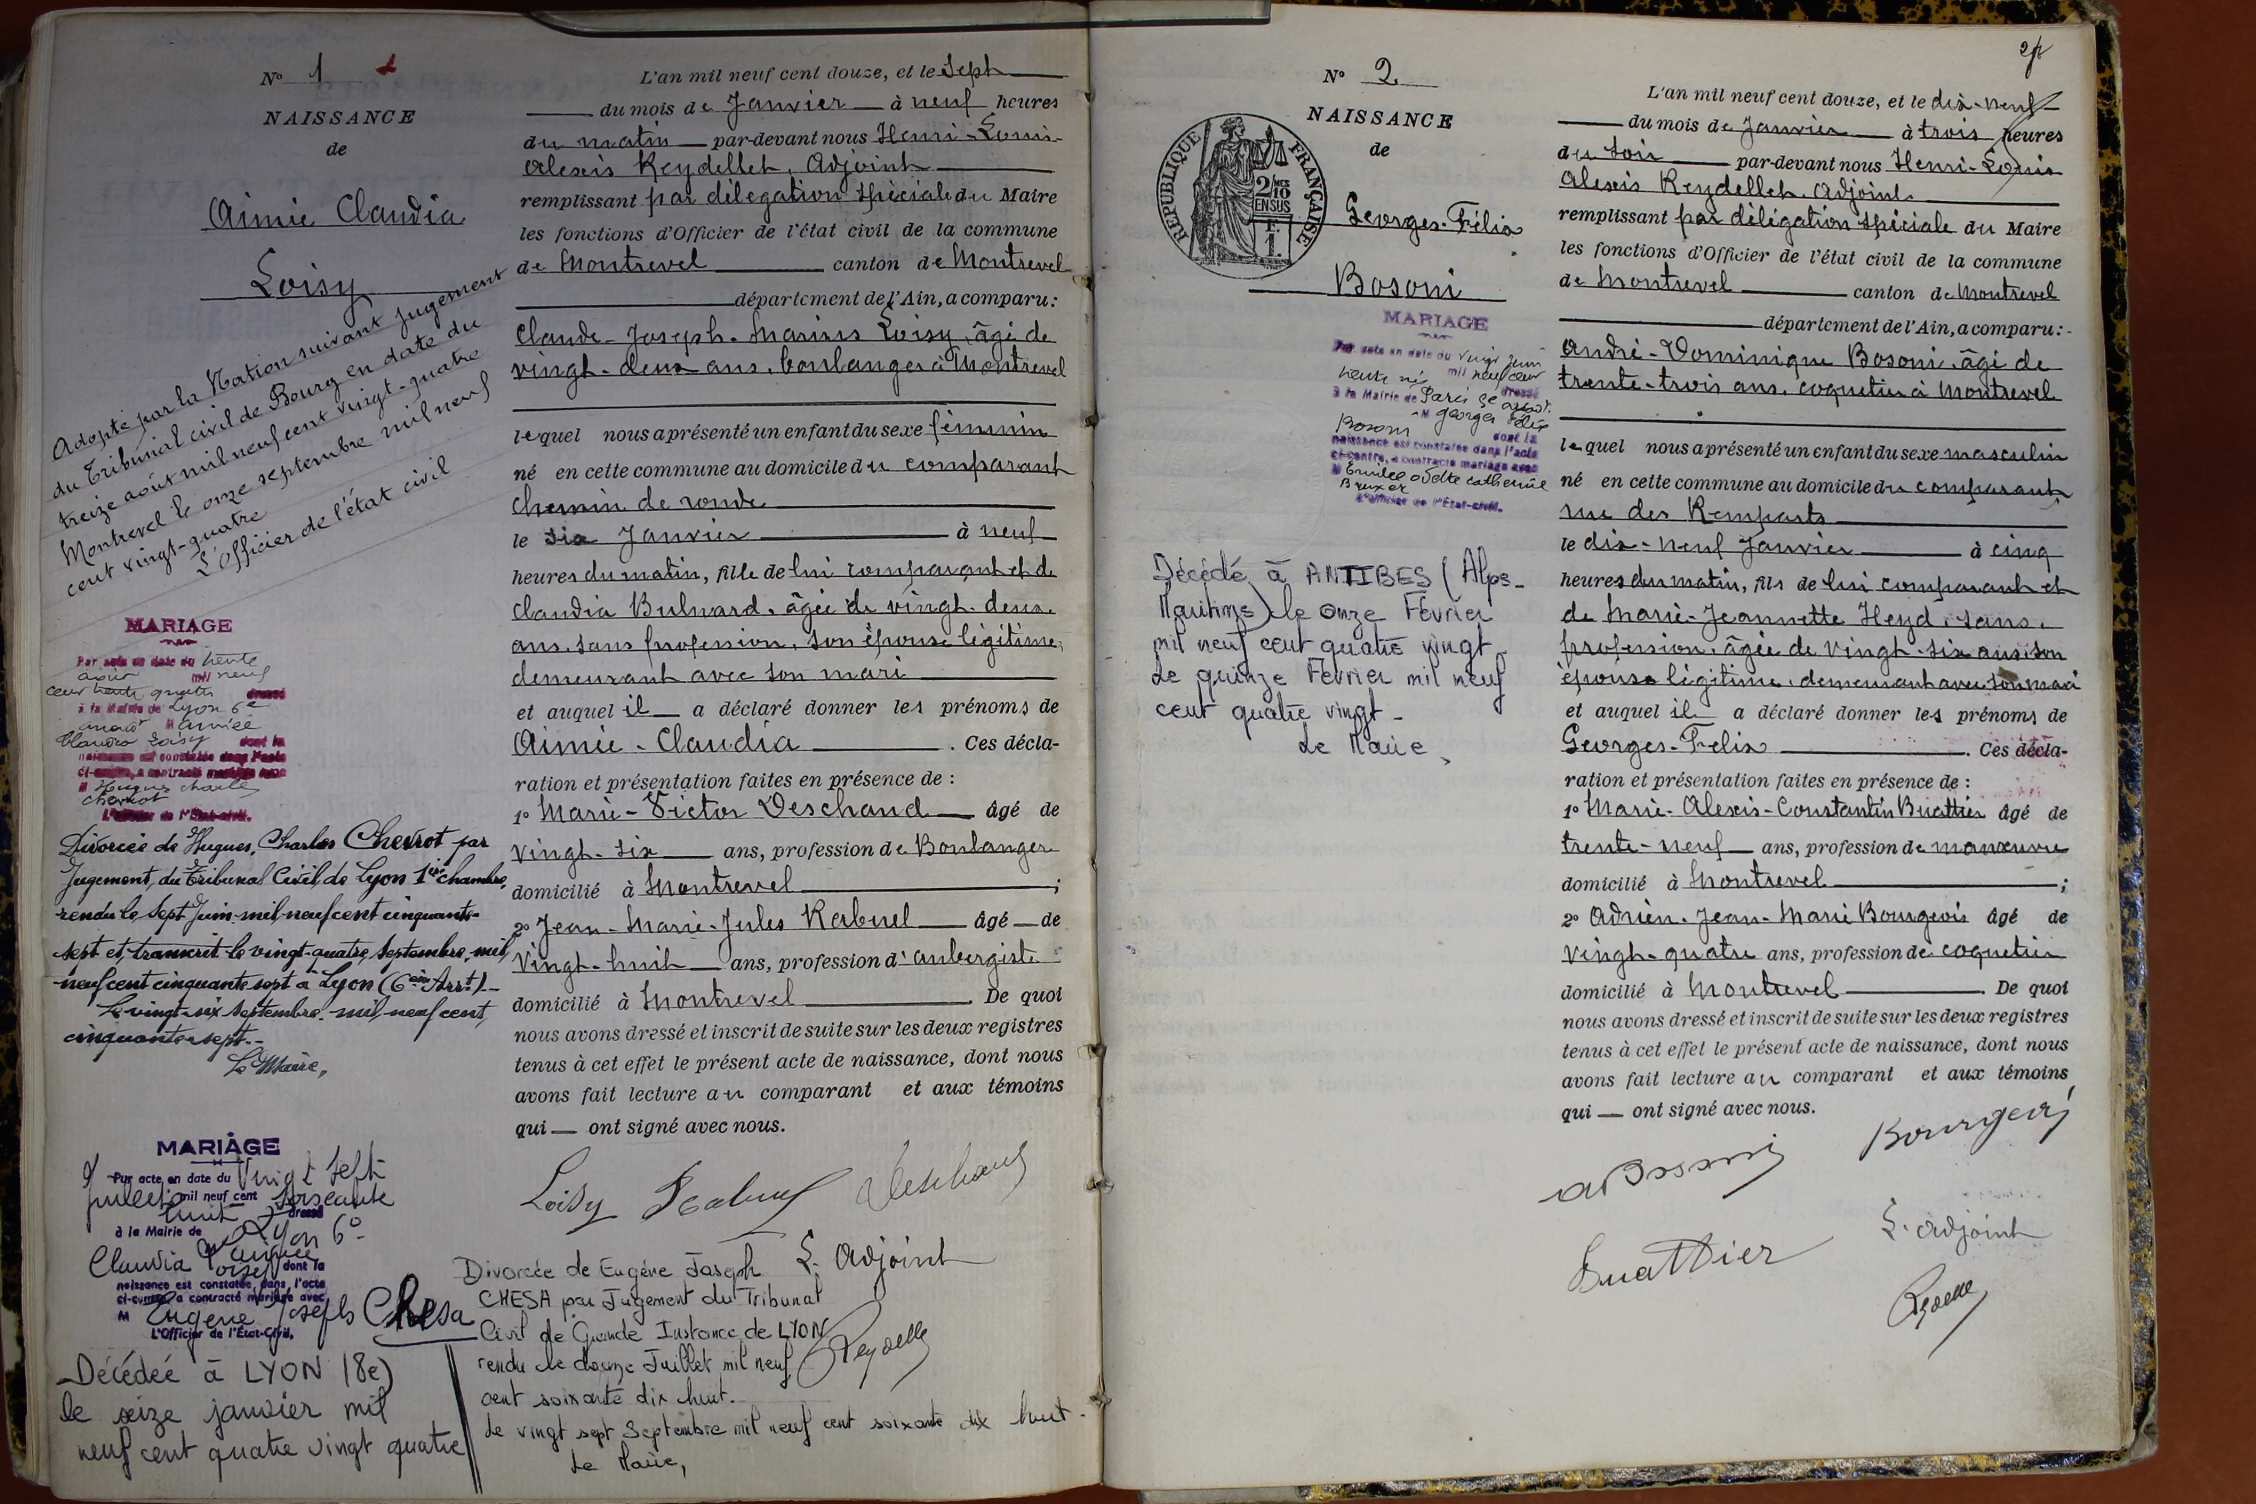 N° 1 1
NAISSANCE
de
Aimée Claudia
Loisy
Adopté par la Nation suivant jugement
du Tribunal civil de Bourg en date du
treize août mil neuf cent vingt-quatre
Montrevel le onze septembre mil neuf
cent vingt-quatre
L'Officier de l'état civil
MARIAGE
Par acte en date du trente
août mil neuf
cent trente quatre dressé
à la Mairie de Lyon 6e
arrondt M Aimée
Claudia Loisy dont la
naissance est constatée dans l'acte
ci-contre, a contracté mariage avec
M Hugues Charles
Chevrot
L'Officier de l'État-civil.
Divorcée de Hugues, Charles Chevrot par
Jugement, du Tribunal Civil de Lyon 1ère chambre,
rendu le sept Juin mil neuf cent cinquante-
sept et, transcrit le vingt-quatre Septembre, mil,
neuf cent cinquante sept à Lyon (6ème Arrt).-
Le vingt-six Septembre mil, neuf cent,
cinquante-sept.-
Le Maire,
MARIAGE
Par acte en date du Vingt Sept
Juillet mil neuf cent soixante
huit dressé
à la Mairie de Lyon 6°
Claudia Aimée
Loisy dont la
naissance est constatée, dans, l'acte
ci-contre a contracté mariage avec
M Eugène Joseph Chesa
L'Officier de l'État-Civil,
Décédée à LYON (8e)
le seize janvier mil
neuf cent quatre vingt quatre
L'an mil neuf cent douze, et le sept
du mois de Janvier à neuf heures
du matin par-devant nous Henri-Louis-
Alexis Reydellet, Adjoint
remplissant par délégation spéciale du Maire
les fonctions d'Officier de l'état civil de la commune
de Montrevel canton de Montrevel
département de l'Ain, a comparu:
Claude-Joseph-Marius Loisy, âgé de
vingt-deux ans, boulanger à Montrevel
lequel nous a présenté un enfant du sexe féminin
né en cette commune au domicile du comparant
chemin de ronde
le six Janvier à neuf
heures du matin, fille de lui comparant et de
Claudia Bulnard, âgée de vingt-deux
ans, sans profession, son épouse légitime,
demeurant avec son mari
et auquel il a déclaré donner les prénoms de
Aimée-Claudia . Ces décla-
ration et présentation faites en présence de :
1° Marie-Victor Deschand âgé de
vingt-six ans, profession de Boulanger
domicilié à Montrevel ;
2° Jean-Marie-Jules Rabuel âgé de
vingt-huit ans, profession d'aubergiste
domicilié à Montrevel . De quoi
nous avons dressé et inscrit de suite sur les deux registres
tenus à cet effet le présent acte de naissance, dont nous
avons fait lecture au comparant et aux témoins
qui ont signé avec nous.
Loisy Rabuel Deschand
L. Adjoint
Reydelle
Divorcée de Eugène Joseph
CHESA par Jugement du Tribunal
Civil de Grande Instance de LYON
rendu le douze Juillet mil neuf
cent soixante dix huit.
Le vingt sept Septembre mil neuf cent soixante dix huit.
Le Maire,
2
N° 2
NAISSANCE
de
RÉPUBLIQUE FRANÇAISE
2/10MES
EN SUS
1F.
Georges-Félix
Bosoni
MARIAGE
Par acte en date du vingt juin
mil neuf cent
trente dressé
à la Mairie de Paris 9e arrondt.
M Georges Félix
Bosoni dont la
naissance est constatée dans l'acte
ci-contre, a contracté mariage avec
M Odette Catherine
L'Officier de l'État-civil.
Décédé à ANTIBES (Alpes-
Maritimes) le onze Février
mil neuf cent quatre vingt-
Le quinze Février mil neuf
cent quatre vingt-
Le Maire,
L'an mil neuf cent douze, et le dix-neuf
du mois de Janvier à trois heures
du soir par-devant nous Henri-Louis
Alexis Reydellet, Adjoint
remplissant par délégation spéciale du Maire
les fonctions d'Officier de l'état civil de la commune
de Montrevel canton de Montrevel
département de l'Ain, a comparu:
André-Dominique Bosoni, âgé de
trente-trois ans, coquetier à Montrevel
lequel nous a présenté un enfant du sexe masculin
né en cette commune au domicile du comparant
rue des Remparts
le dix-neuf Janvier à cinq
heures du matin, fils de lui comparant et
de Marie-Jeannette Heyd, sans
profession, âgée de vingt-six ans, son
épouse légitime, demeurant avec son mari
et auquel il a déclaré donner les prénoms de
Georges-Félix . Ces décla-
ration et présentation faites en présence de :
1° Marie-Alexis-Constantin Buathier âgé de
trente-neuf ans, profession de manœuvre
domicilié à Montrevel ;
2° Adrien-Jean-Marie Bourgeois âgé de
vingt-quatre ans, profession de coquetier
domicilié à Montrevel . De quoi
nous avons dressé et inscrit de suite sur les deux registres
tenus à cet effet le présent acte de naissance, dont nous
avons fait lecture au comparant et aux témoins
qui ont signé avec nous.
Bourgeois
A Bosoni
L. Adjoint
Buatthier
Reydelle